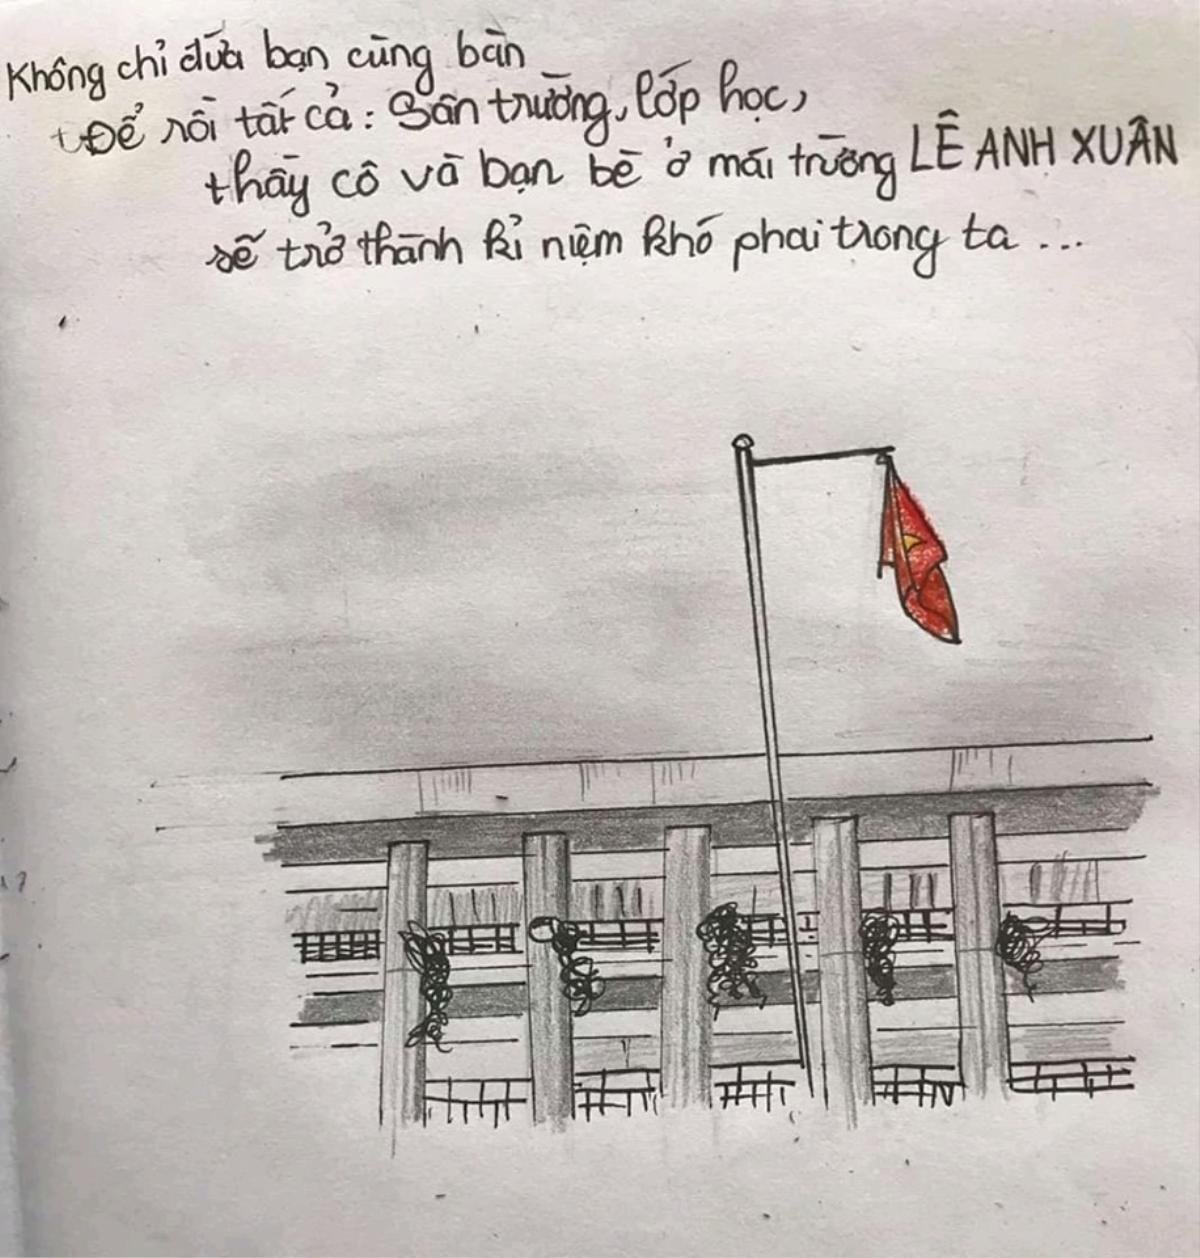 Không chỉ đứa bạn cùng bàn
Để rồi tất cả: Sân trường, lớp học,
thầy cô và bạn bè ở mái trường LÊ ANH XUÂN
sẽ trở thành kỉ niệm khó phai trong ta ...